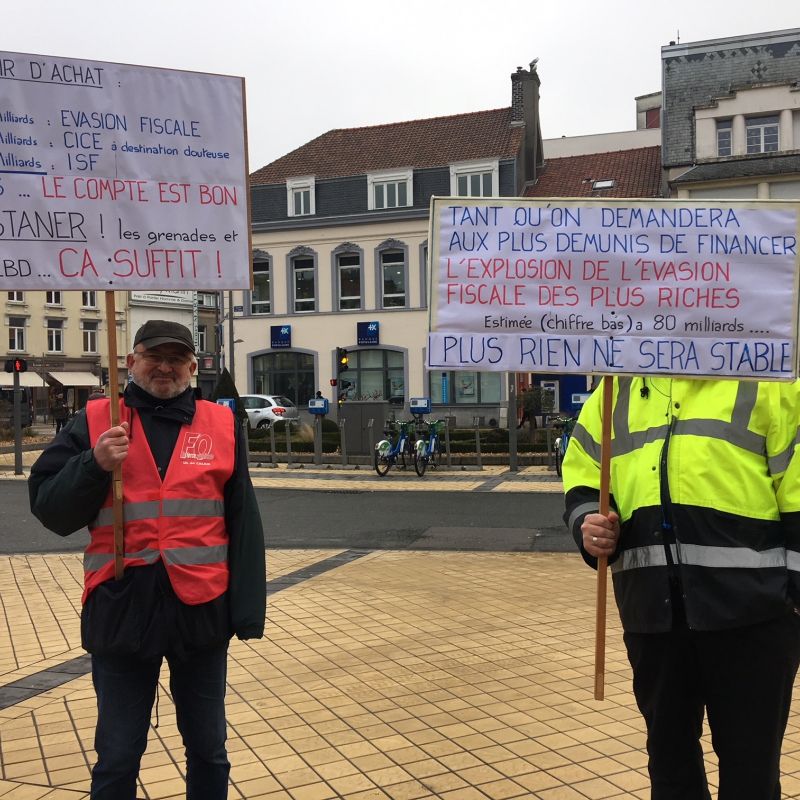 IR D'ACHAT :
illiards : EVASION FISCALE
Milliards : CICE à destination douteuse
Milliards : ISF
... LE COMPTE EST BON
STANER ! les grenades et
LBD ... ÇA SUFFIT !
TANT QU'ON DEMANDERA
AUX PLUS DEMUNIS DE FINANCER
L'EXPLOSION DE L'EVASION
FISCALE DES PLUS RICHES
Estimée (chiffre bas) a 80 milliards ....
PLUS RIEN NE SERA STABLE
FO